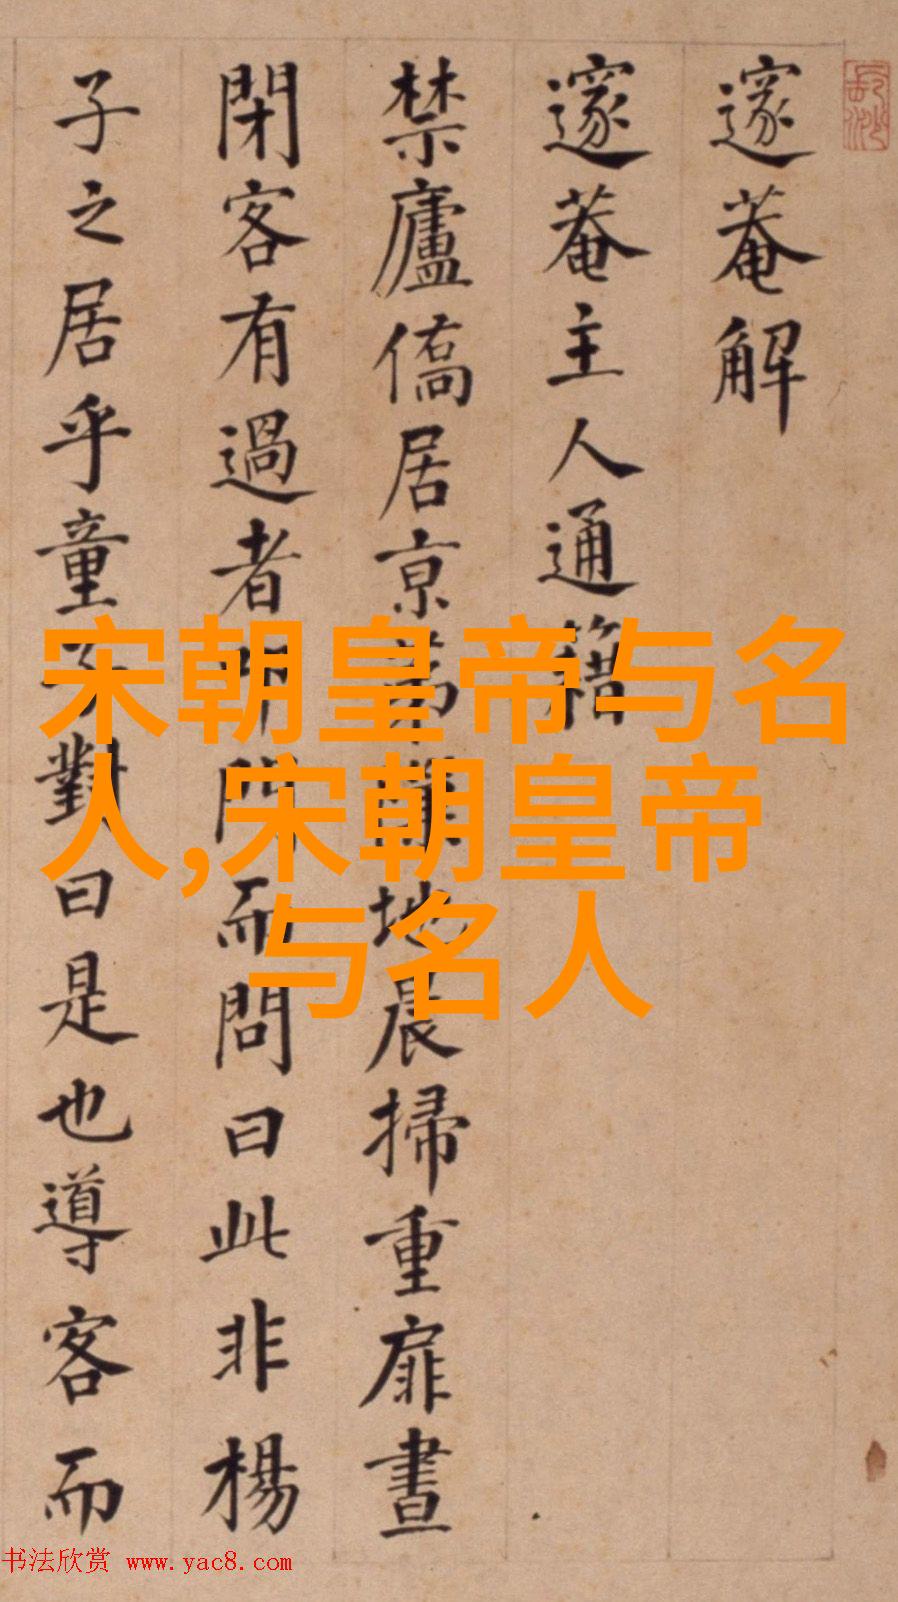 邃菴解
邃菴主人通籍
禁廬僑居京
地晨掃重扉晝
閉客有過者
而問曰此非楊
子之居乎童子對曰是也導客而
宋朝皇帝与名
人,宋朝皇帝
与名人
书法欣赏 www.yac8.com